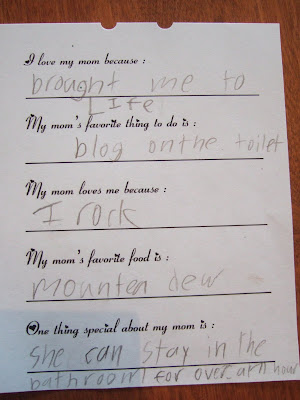 I love my mom because :
brought me to
Life
My mom's favorite thing to do is :
blog on the toilet
My mom loves me because :
I rock
My mom's favorite food is :
mounten dew
One thing special about my mom is :
she can stay in the
bathroom for over an hour